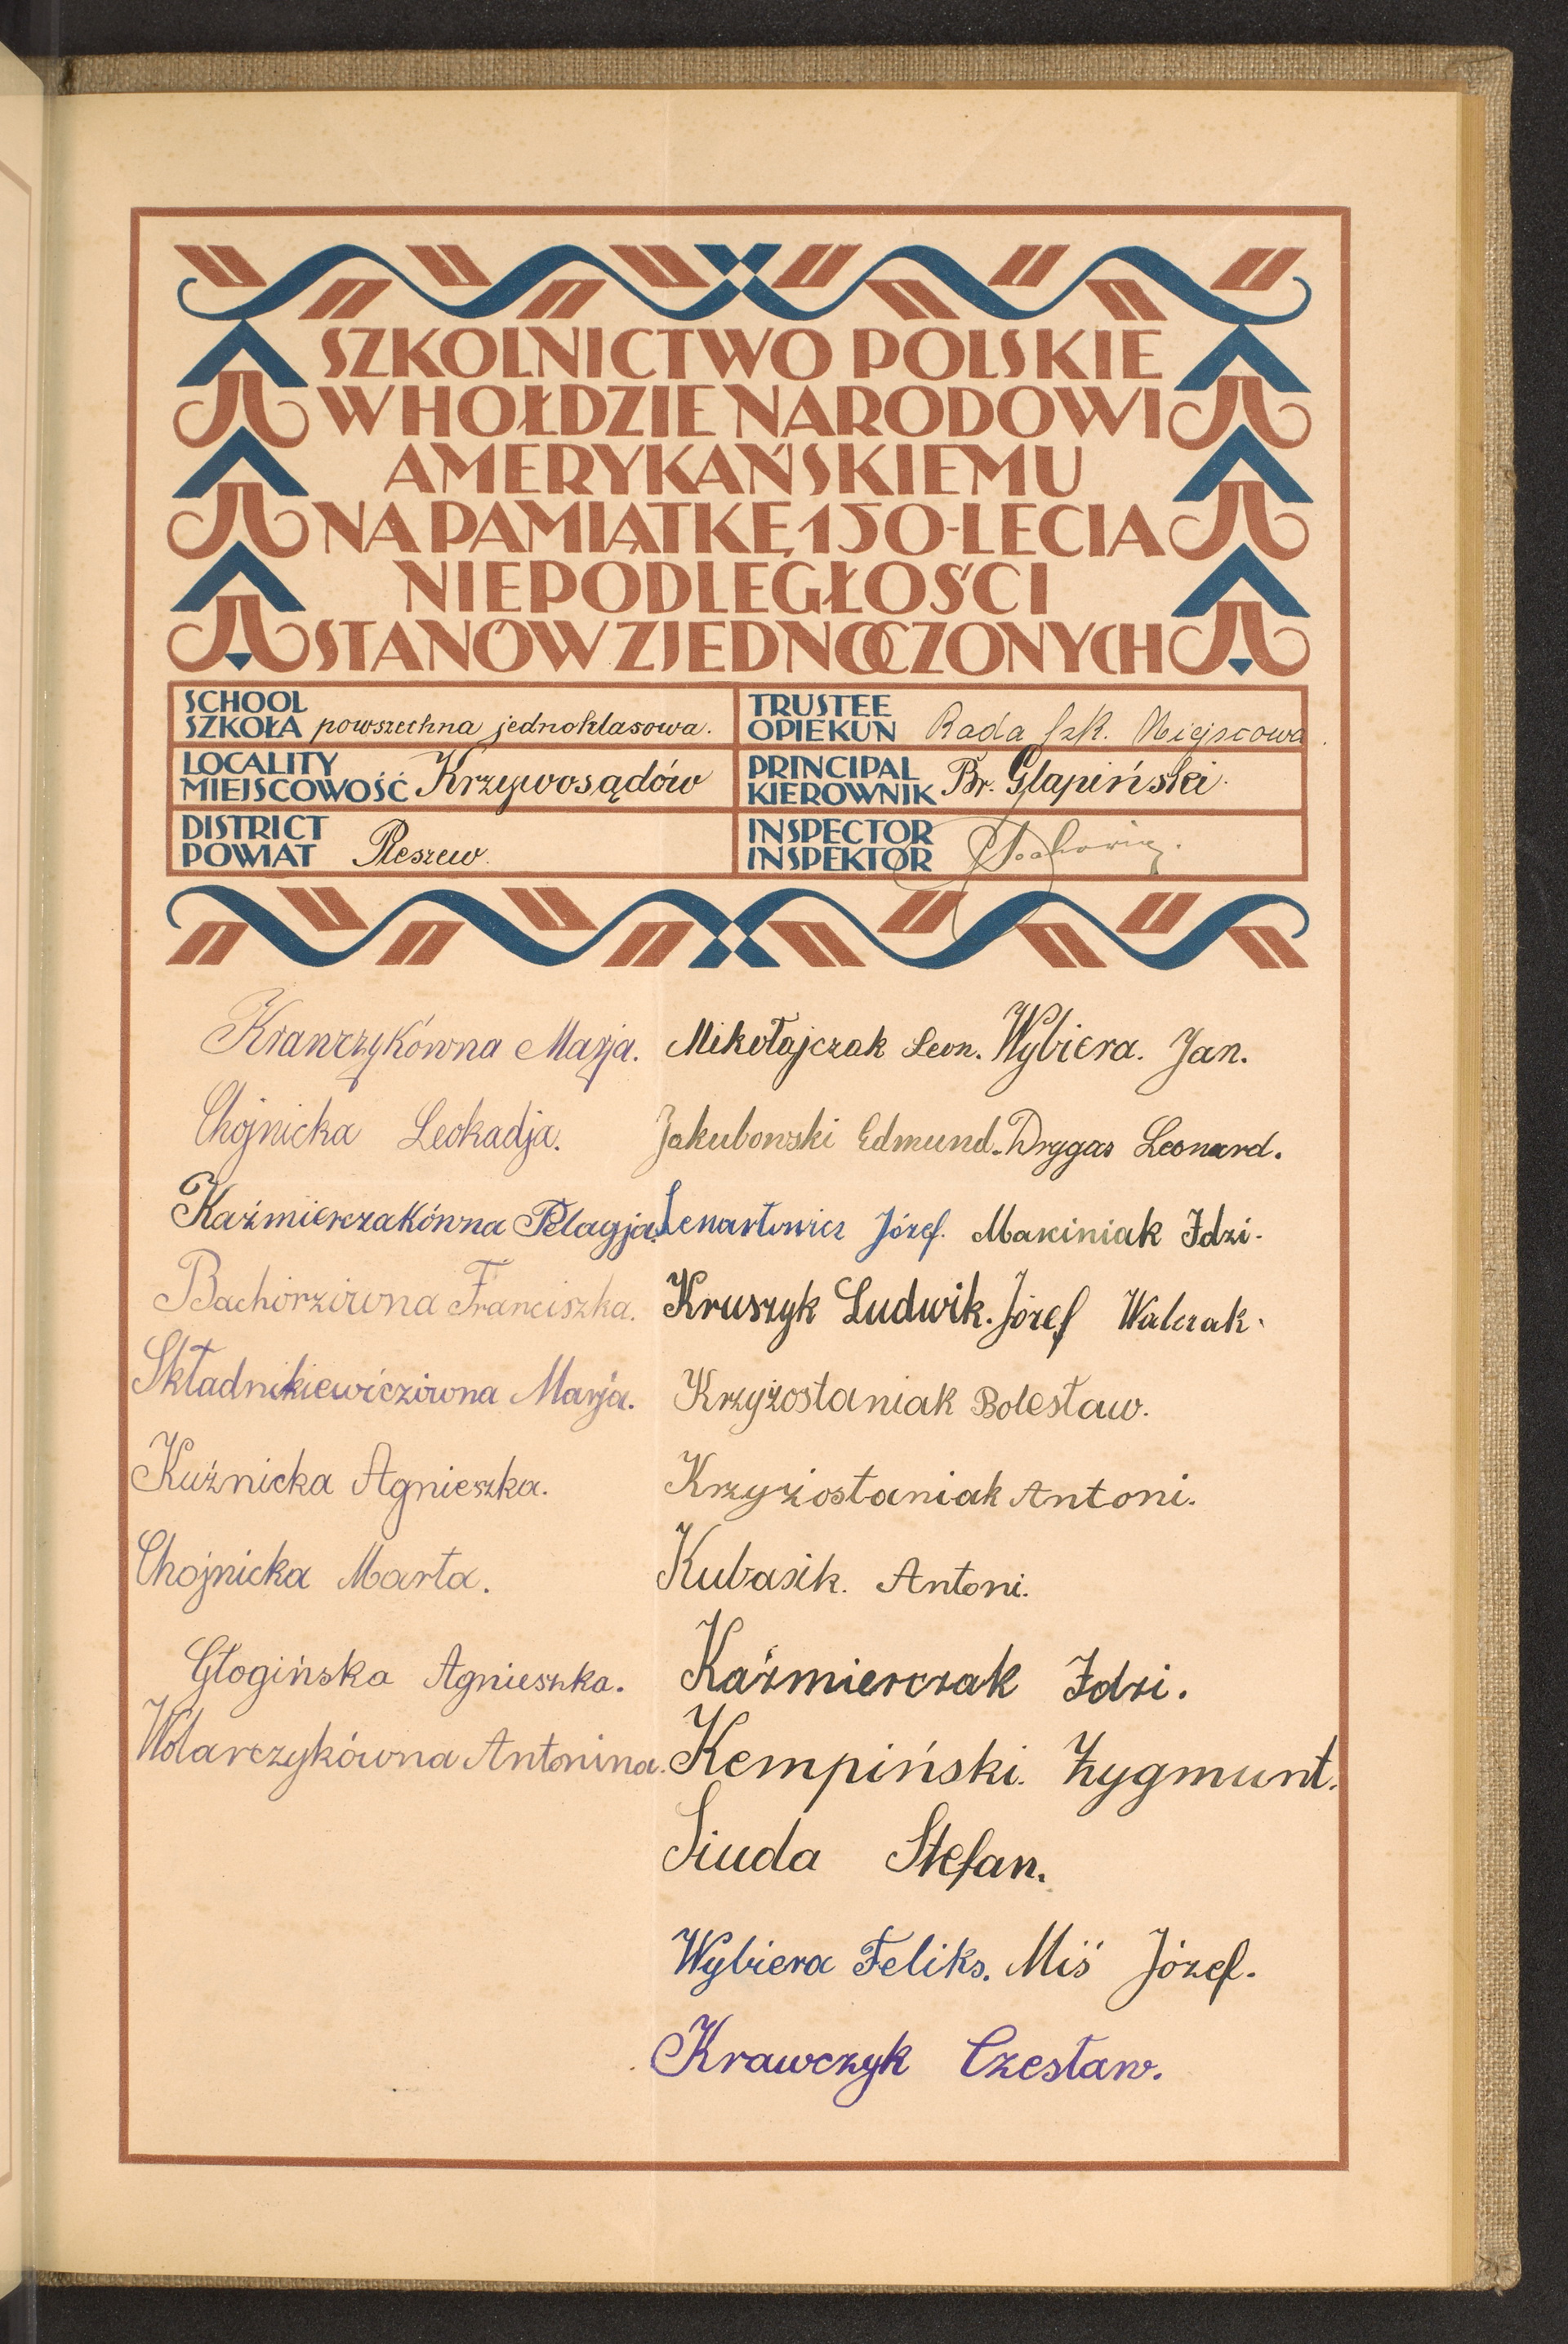 SZKOLNICTWO POLSKIE
W HOŁDZIE NARODOWI
AMERYKAŃSKIEMU
NA PAMIĄTKĘ 150-LECIA
NIEPODLEGŁOŚCI
STANÓW ZJEDNOCZONYCH
SCHOOL
SZKOŁA powszechna jednoklasowa.
TRUSTEE
OPIEKUN Rada Szk. Miejscowa.
LOCALITY
MIEJSCOWOŚĆ Krzywosądów
PRINCIPAL
KIEROWNIK Br. Glapiński.
DISTRICT
POWIAT Pleszew.
INSPECTOR
INSPEKTOR
Krawczykówna Marja. Mikołajczak Leon. Wybiera. Jan.
Chojnicka Leokadja. Jakubowski Edmund. Drygas Leonard.
Kaźmierczakówna Pelagja. Lenartowicz Józef. Marciniak Idzi.
Bachorzówna Franciszka. Kruszyk Ludwik. Józef Walczak.
Składnikiewiczówna Marja. Krzyżostaniak Bolesław.
Kuźnicka Agnieszka. Krzyżostaniak Antoni.
Chojnicka Marta. Kubasik. Antoni.
Głogińska Agnieszka. Kaźmierczak Idzi.
Wolarczykówna Antonina. Kempiński. Zygmunt.
Siuda Stefan.
Wybiera Feliks. Miś Józef.
Krawczyk Czesław.